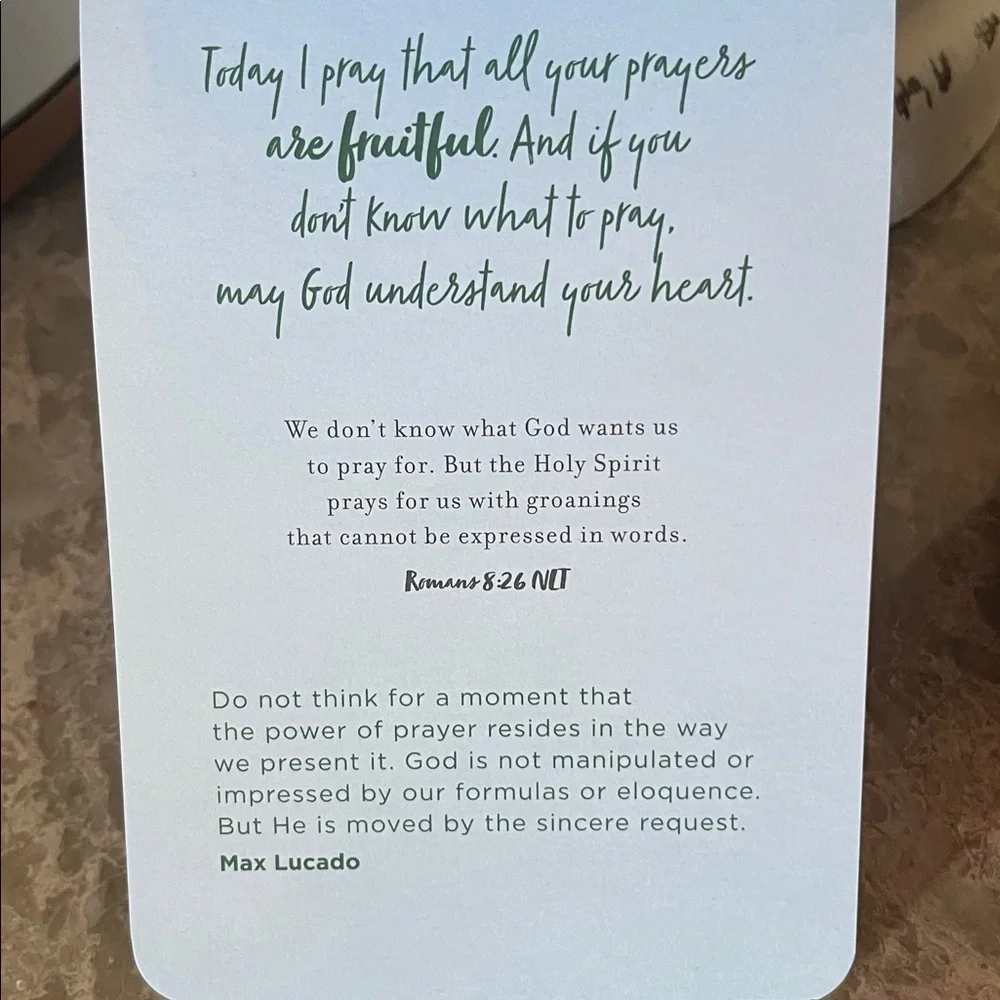 Today I pray that all your prayers
are fruitful. And if you
don't know what to pray,
may God understand your heart.
We don't know what God wants us
to pray for. But the Holy Spirit
prays for us with groanings
that cannot be expressed in words.
Romans 8:26 NLT
Do not think for a moment that
the power of prayer resides in the way
we present it. God is not manipulated or
impressed by our formulas or eloquence.
But He is moved by the sincere request.
Max Lucado